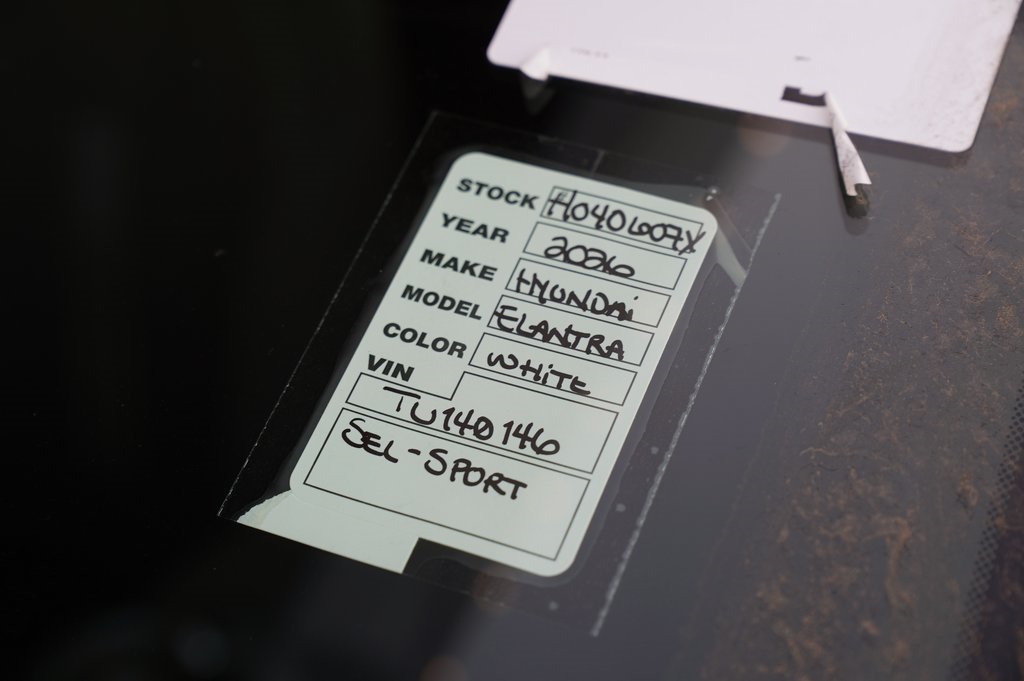 STOCK H040607X
YEAR 2026
MAKE HYUNDAi
MODEL ELANTRA
COLOR WHiTE
VIN
TU140146
SEL-SPORT